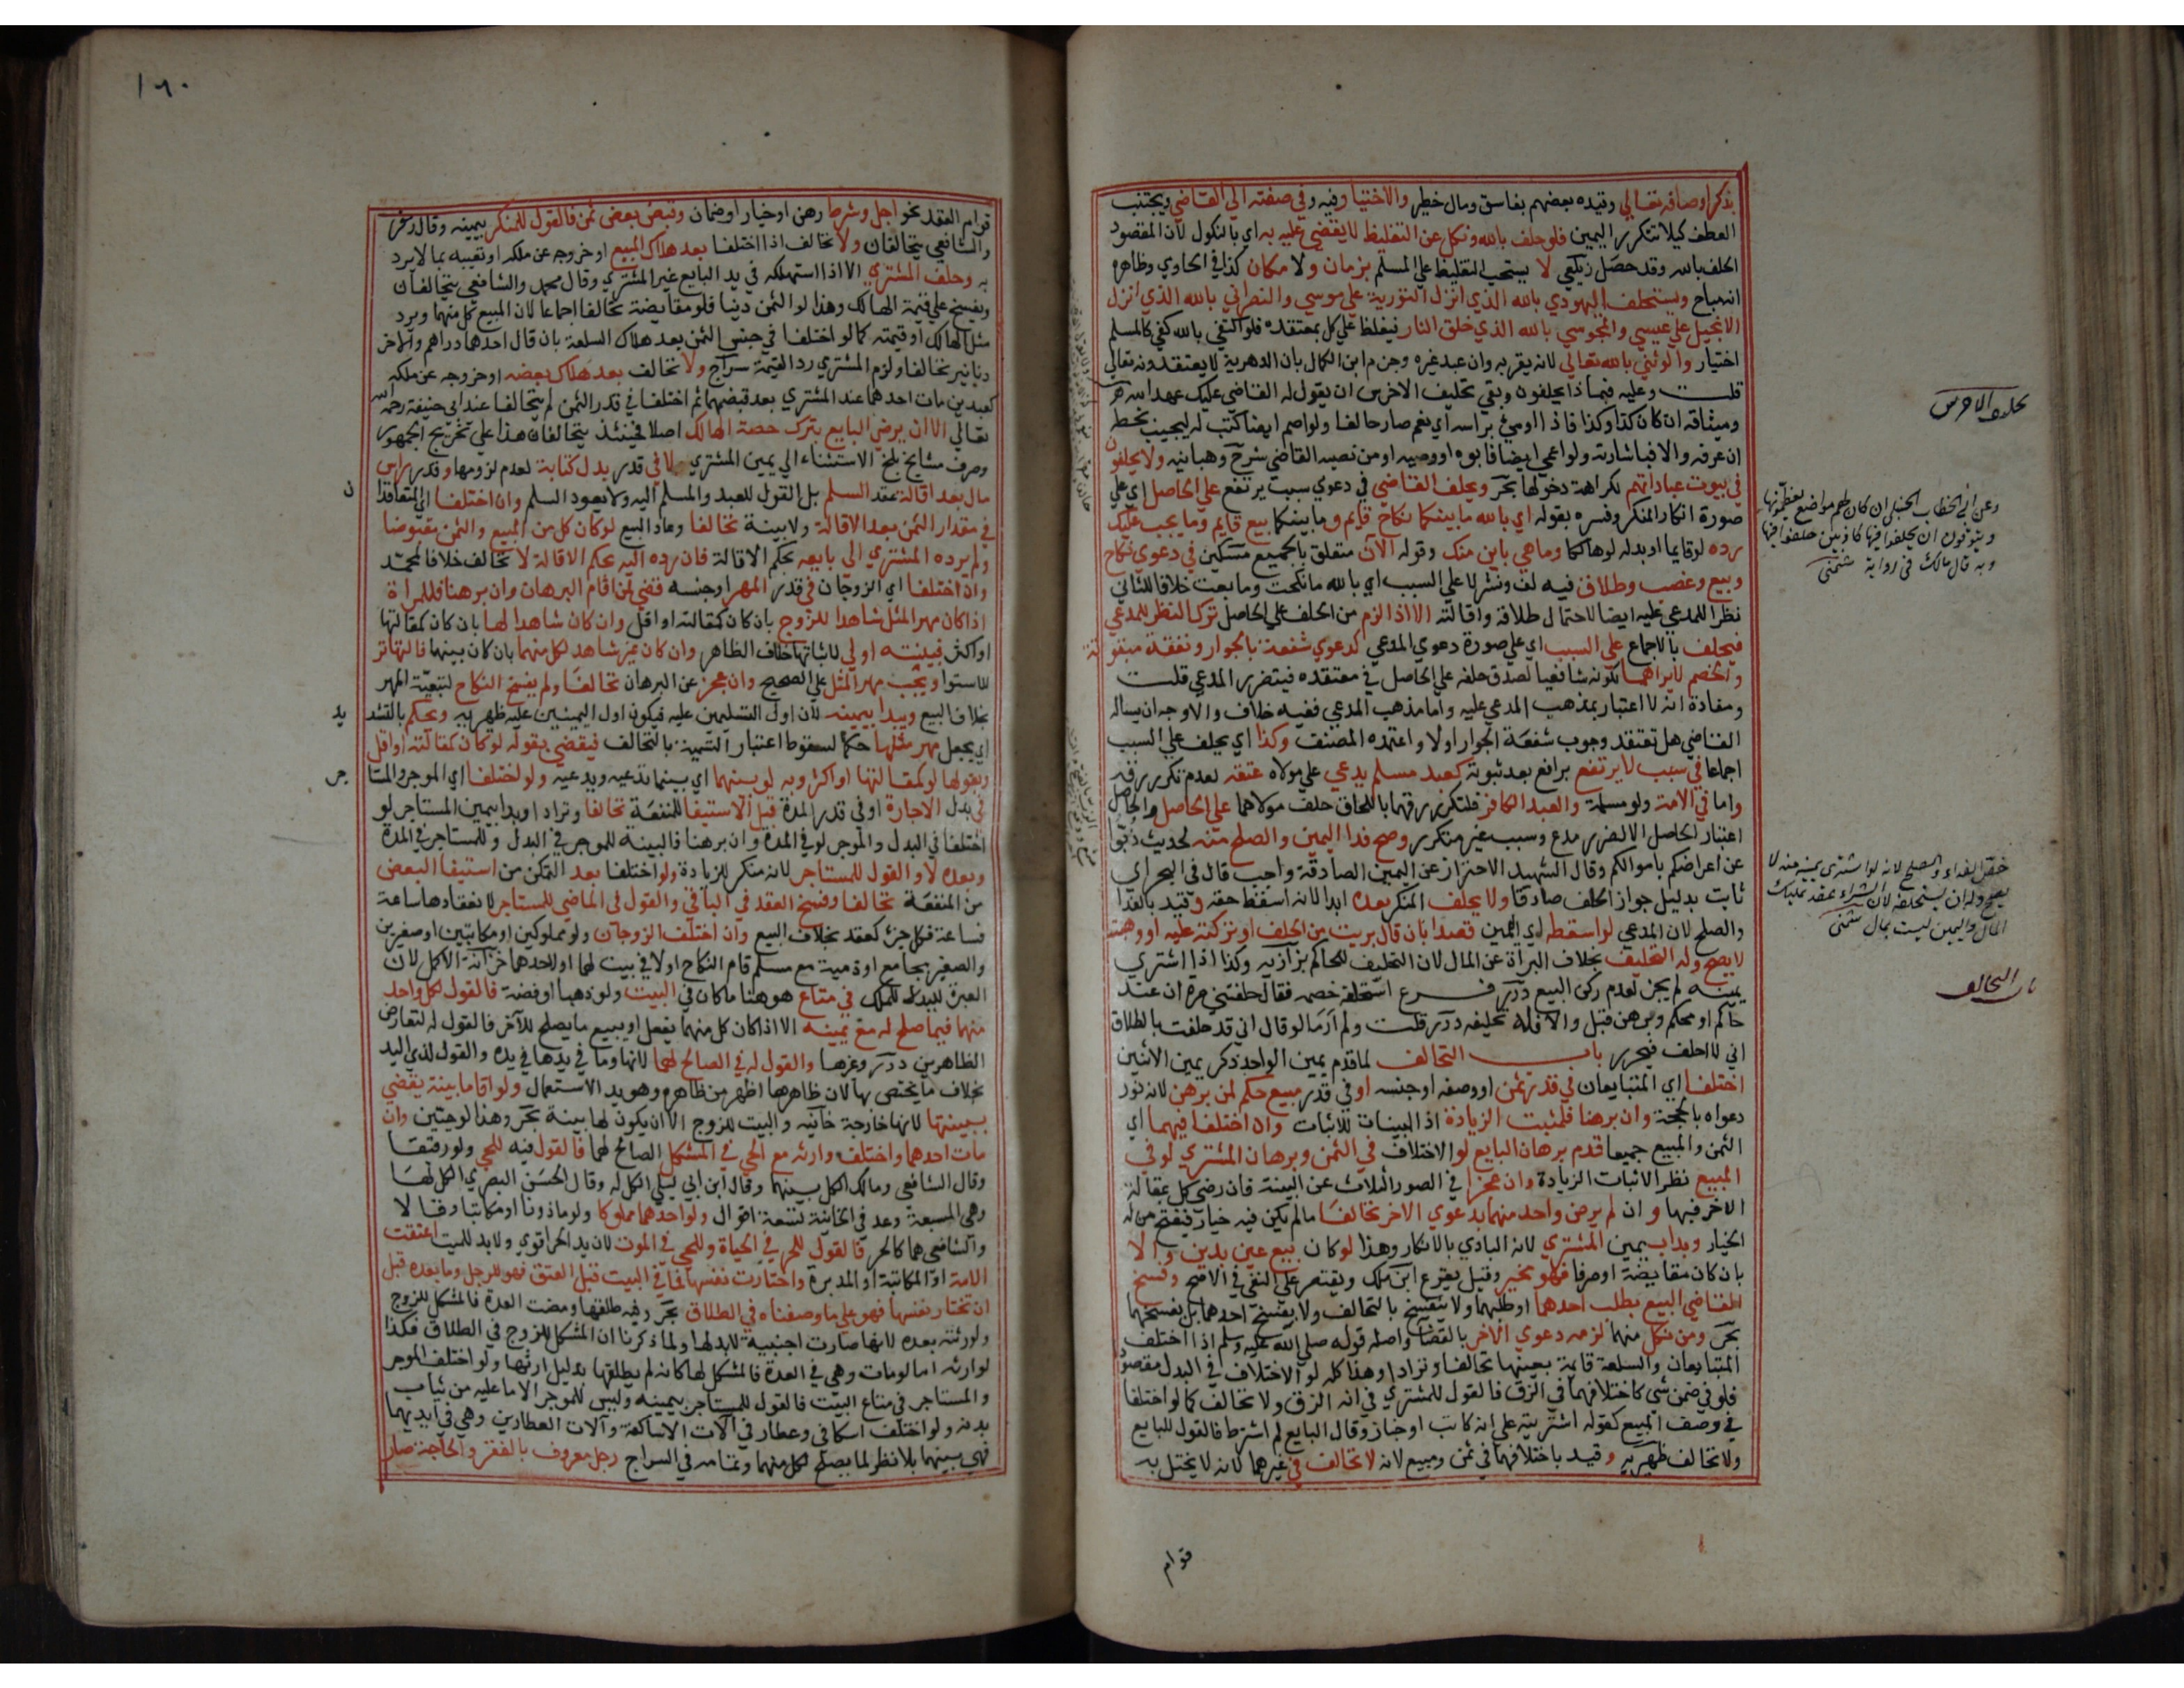 بذكر اوصافه تعالي وقيده بعضهم بفاسق ومال خطير والاختيار فيه وفي صفته الي القاضي ويجتنب
العطف كيلا تتكرر اليمين فلو حلف بالله ونكل عن التغليظ لا يقضي عليه به اي بالنكول لان المقصود
الحلف بالله وقد حصل زيلعي لا يستحب التغليظ علي المسلم بزمان ولا مكان كذا في الحاوي وظاهره
انه مباح ويستحلف اليهودي بالله الذي انزل التورية علي موسي والنصراني بالله الذي انزل
الانجيل علي عيسي والمجوسي بالله الذي خلق النار فيغلظ علي كل بمعتقده فلو اكتفي بالله كفي كالمسلم
اختيار والوثني بالله تعالي لانه يقر به وان عبد غيره وجزم ابن الكمال بان الدهرية لا يعتقدونه تعالي
قلت وعليه فبماذا يحلفون وبقي تحليف الاخرس ان يقول له القاضي عليك عهد الله
وميثاقه ان كان كذا وكذا فاذا اومئ براسه اي نعم صار حالفا ولو اصم ايضا كتب له ليجيب بخطه
ان عرفه والا فباشارته ولو اعمي ايضا فابوه او وصيه او من نصبه القاضي شرح وهبانيه ولا يحلفون
في بيوت عباداتهم لكراهة دخولها بحر ويحلف القاضي في دعوي سبب يرتفع علي الحاصل اي علي
صورة انكار المنكر وفسره بقوله اي بالله ما بينكما نكاح قايم وما بينكما بيع قايم وما يجب عليك
رده لو قايما او بدله لو هالكا وما هي باين منك وقوله الآن متعلق بالجميع مسكين في دعوي نكاح
وبيع وغصب وطلاق فيه لف ونشر لا علي السبب اي بالله ما نكحت وما بعت خلافا للثاني
نظرا للمدعي عليه ايضا لاحتمال طلاقه واقالته الا اذا لزم من الحلف علي الحاصل ترك النظر للمدعي
فيحلف بالاجماع علي السبب اي علي صورة دعوي المدعي كدعوي شفعة بالجوار ونفقة مبتوتة
والخصم لا يراهما لكونه شافعيا لصدق حلفه علي الحاصل في معتقده فيتضرر المدعي قلت
ومفاده انه لا اعتبار بمذهب المدعي عليه واما مذهب المدعي ففيه خلاف والاوجه ان يساله
القاضي هل تعتقد وجوب شفعة الجوار اولا واعتمده المصنف وكذا اي يحلف علي السبب
اجماعا في سبب لا يرتفع برافع بعد ثبوته كعبد مسلم يدعي علي مولاه عتقه لعدم تكرر رقه
واما في الامة ولو مسلمة والعبد الكافر فلتكرر رقهما باللحاق حلف مولاهما علي الحاصل والحاصل
اعتبار الحاصل الا لضرر مدع وسبب غير متكرر وصح فدا اليمين والصلح منه لحديث ذبوا
عن اعراضكم باموالكم وقال الشهيد الاحتراز عن اليمين الصادقة واجب قال في البحر اي
ثابت بدليل جواز الحلف صادقا ولا يحلف المنكر بعده ابدا لانه اسقط حقه وقيد بالفدا
والصلح لان المدعي لو اسقطه اي اليمين قصدا بان قال بريت من الحلف او تركته عليه او وهبته
لا يصح وله التحليف بخلاف البراة عن المال لان التحليف للحاكم بزازيه وكذا اذا اشتري
يمينه لم يجز لعدم ركن البيع درر فرع استحلف خصمه فقال حلفتني مرة ان عند
حاكم او محكم وبرهن قبل والا فله تحليفه درر قلت ولم ار ما لو قال اني قد حلفت بالطلاق
اني لا احلف فيحرر باب التحالف لما قدم يمين الواحد ذكر يمين الاثنين
اختلفا اي المتبايعان في قدر ثمن او وصفه او جنسه او في قدر مبيع حكم لمن برهن لانه نور
دعواه بالحجة وان برهنا فلمثبت الزيادة اذ البينات للاثبات وان اختلفا فيهما اي
الثمن والمبيع جميعا قدم برهان البايع لو الاختلاف في الثمن وبرهان المشتري لو في
المبيع نظر الاثبات الزيادة وان عجزا في الصور الثلاث عن البينة فان رضي كل بمقالة
الاخر فبها وان لم يرض واحد منهما بدعوي الاخر تحالفا ما لم يكن فيه خيار فيفسخ من له
الخيار وبدا بيمين المشتري لانه البادي بالانكار وهذا لو كان بيع عين بدين والا
بان كان مقايضة او صرفا فهو مخير وقيل يقرع ابن ملك ويقتصر علي النفي في الاصح وفسخ
القاضي البيع بطلب احدهما او طلبهما ولا ينفسخ بالتحالف ولا بفسخ احدهما بل بفسخهما
بحر ومن نكل منهما لزمه دعوي الاخر بالقضا واصله قوله صلي الله عليه وسلم اذا اختلف
المتبايعان والسلعة قايمة بعينها تحالفا وترادا وهذا كله لو الاختلاف في البدل مقصودا
فلو في ضمن شي كاختلافهما في الزق فالقول للمشتري في انه الزق ولا تحالف كما لو اختلفا
في وصف المبيع كقوله اشتريته علي انه كاتب او خباز وقال البايع لم اشترط فالقول للبايع
ولا تحالف ظهيريه وقيد باختلافهما في ثمن ومبيع لانه لا تحالف في غيرهما لانه لا يختل به
قوام
تحليف الاخرس
وعن ابي الخطاب الحنبلي ان كان لهم مواضع يعظمونها
ويتوقون ان يحلفوا فيها كاذبين حلفوا فيها
وبه قال مالك في رواية شمني
خص الفداء والصلح لانه لو اشتري يمينه منه لا
يصح وله ان يستحلفه لان الشراء عقد تمليك
المال واليمين ليست بمال شمني
باب التحالف
١٦٠
قوام العقد نحو اجل وشرط رهن او خيار او ضمان وقبض بعض ثمن فالقول للمنكر بيمينه وقال زفر
والشافعي يتحالفان ولا تحالف اذا اختلفا بعد هلاك المبيع او خروجه عن ملكه او تعيبه بما لا يرد
به وحلف المشتري الا اذا استهلكه في يد البايع غير المشتري وقال محمد والشافعي يتحالفان
ويفسخ علي قيمة الهالك وهذا لو الثمن دينا فلو مقايضة تحالفا اجماعا لان المبيع كل منهما ويرد
مثل الهالك او قيمته كما لو اختلفا في جنس الثمن بعد هلاك السلعة بان قال احدهما دراهم والاخر
دنانير تحالفا ولزم المشتري رد القيمة سراج ولا تحالف بعد هلاك بعضه او خروجه عن ملكه
كعبدين مات احدهما عند المشتري بعد قبضهما ثم اختلفا في قدر الثمن لم يتحالفا عند ابي حنيفة رحمه الله
تعالي الا ان يرضي البايع بترك حصة الهالك اصلا فحينئذ يتحالفان هذا علي تخريج الجمهور
وصرف مشايخ بلخ الاستثناء الي يمين المشتري لا في قدر بدل كتابة لعدم لزومها وقدر راس
مال بعد اقالة عقد السلم بل القول للعبد والمسلم اليه ولا يعود السلم وان اختلفا اي المتعاقدان
في مقدار الثمن بعد الاقالة ولا بينة تحالفا وعاد البيع لو كان كل من المبيع والثمن مقبوضا
ولم يرده المشتري الي بايعه بحكم الاقالة فان رده اليه بحكم الاقالة لا تحالف خلافا لمحمد
وان اختلفا اي الزوجان في قدر المهر او جنسه قضي لمن اقام البرهان وان برهنا فللمراة
اذا كان مهر المثل شاهدا للزوج بان كان كمقالته او اقل وان كان شاهدا لها بان كان كمقالتها
او اكثر فبينته اولي لاثباتها خلاف الظاهر وان كان غير شاهد لكل منهما بان كان بينهما فالتهاتر
للاستوا ويجب مهر المثل علي الصحيح وان عجز عن البرهان تحالفا ولم يفسخ النكاح لتبعية المهر
بخلاف البيع ويبدا بيمينه لان اول التسليمين عليه فيكون اول اليمينين عليه ظهيريه ويحكم بالتشديد
اي يجعل مهر مثلها حكما لسقوط اعتبار التسمية بالتحالف فيقضي بقوله لو كان كمقالته او اقل
وبقولها لو كمقالتها او اكثر وبه لو بينهما اي بينما تدعيه ويدعيه ولو اختلفا اي الموجر والمستاجر
في بدل الاجارة او في قدر المدة قبل الاستيفا للمنفعة تحالفا وترادا وبدا بيمين المستاجر لو
اختلفا في البدل والموجر لو في المدة وان برهنا فالبينة للموجر في البدل وللمستاجر في المدة
وبعده لا والقول للمستاجر لانه منكر للزيادة ولو اختلفا بعد التمكن من استيفا البعض
من المنفعة تحالفا وفسخ العقد في الباقي والقول في الماضي للمستاجر لانعقادها ساعة
فساعة فكل جزء كعقد بخلاف البيع وان اختلف الزوجان ولو مملوكين او مكاتبين او صغيرين
والصغير يجامع او ذمية مع مسلم قام النكاح اولا في بيت لهما او لاحدهما خزانة الاكمل لان
العبرة لليد لا للملك في متاع هو هنا ما كان في البيت ولو ذهبا او فضة فالقول لكل واحد
منهما فيما صلح له مع يمينه الا اذا كان كل منهما يفعل او يبيع ما يصلح للآخر فالقول له لتعارض
الظاهرين درر وغيرها والقول له في الصالح لهما لانها وما في يدها في يده والقول لذي اليد
بخلاف ما يختص بها لان ظاهرها اظهر من ظاهره وهو يد الاستعمال ولو اقاما بينة يقضي
ببينتها لانها خارجة خانيه والبيت للزوج الا ان يكون لها بينة بحر وهذا لو حيين وان
مات احدهما واختلف وارثه مع الحي في المشكل الصالح لهما فالقول فيه للحي ولو رقيقا
وقال الشافعي ومالك الكل بينهما وقال ابن ابي ليلي الكل له وقال الحسن البصري الكل لها
وهي المسبعة وعد في الخانية تسعة اقوال ولو احدهما مملوكا ولو ماذونا او مكاتبا وقالا
والشافعي هما كالحر فالقول للحر في الحياة وللحي في الموت لان يد الحر اقوي ولا يد للميت اعتقت
الامة او المكاتبة او المدبرة واختارت نفسها فما في البيت قبل العتق فهو للرجل وما بعده قبل
ان تختار نفسها فهو علي ما وصفناه في الطلاق بحر وفيه طلقها ومضت العدة فالمشكل للزوج
ولورثته بعده لانها صارت اجنبية لا يد لها ولما ذكرنا ان المشكل للزوج في الطلاق فكذا
لوارثه اما لو مات وهي في العدة فالمشكل لها كانه لم يطلقها بدليل ارثها ولو اختلف الموجر
والمستاجر في متاع البيت فالقول للمستاجر بيمينه وليس للموجر الا ما عليه من ثياب
بدنه ولو اختلف اسكافي وعطار في آلات الاساكفة وآلات العطارين وهي في ايديهما
فهي بينهما بلا نظر لما يصلح لكل منهما وتمامه في السراج رجل معروف بالفقر والحاجة صار